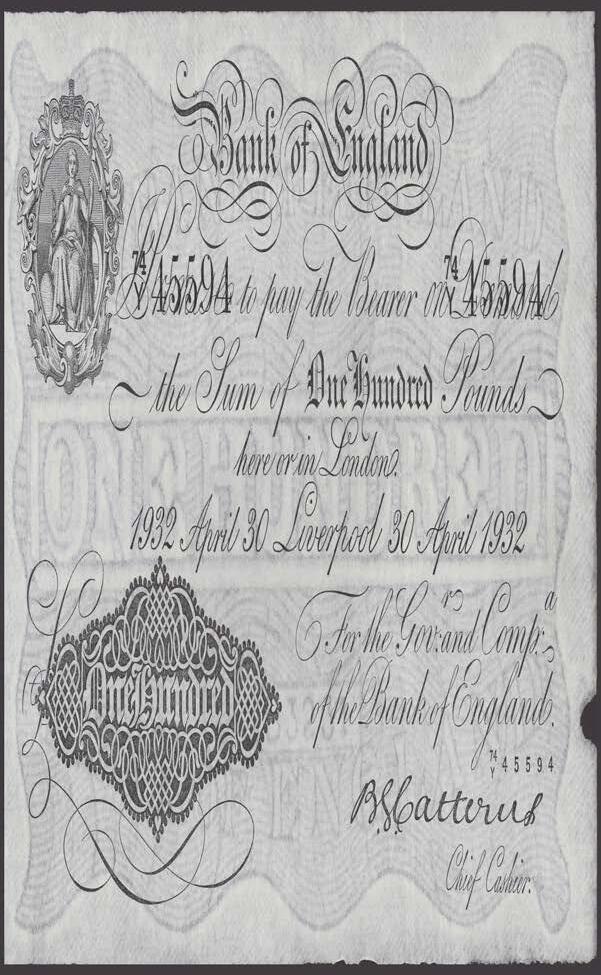 Bank of England
I Promise to pay the Bearer on Demand
74/Y 45594 74/Y 45594
the Sum of One Hundred Pounds
here or in London.
1932 April 30 Liverpool 30 April 1932
For the Govr: and Compa:
of the Bank of England.
One Hundred
74/Y 45594
B G Catterns
Chief Cashier.
ONE HUNDRED